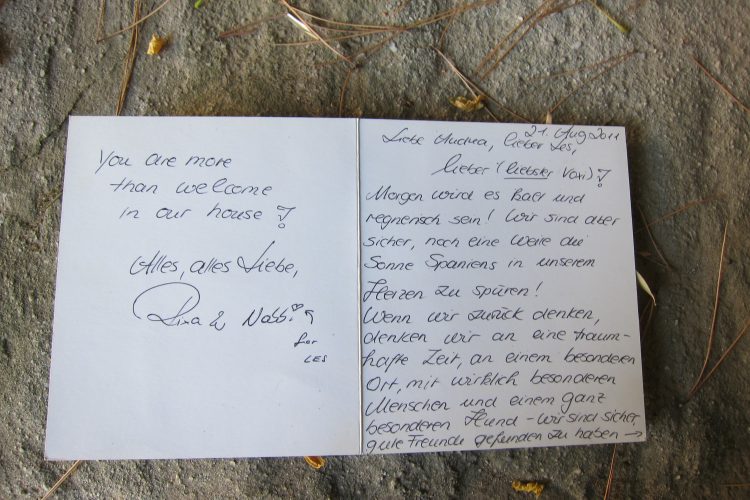 You are more
than welcome
in our house!
Alles, alles Liebe,
&
for
LES
21. Aug 2011
Liebe Andrea, lieber Les,
lieber (liebster )!
Morgen wird es kalt und
regnerisch sein! Wir sind aber
sicher, noch eine Weile die
Sonne Spaniens in unserem
Herzen zu spüren!
Wenn wir zurück denken,
denken wir an eine traum-
hafte Zeit, an einem besonderen
Ort, mit wirklich besonderen
Menschen und einem ganz
besonderen Hund - wir sind sicher,
gute Freunde gefunden zu haben →